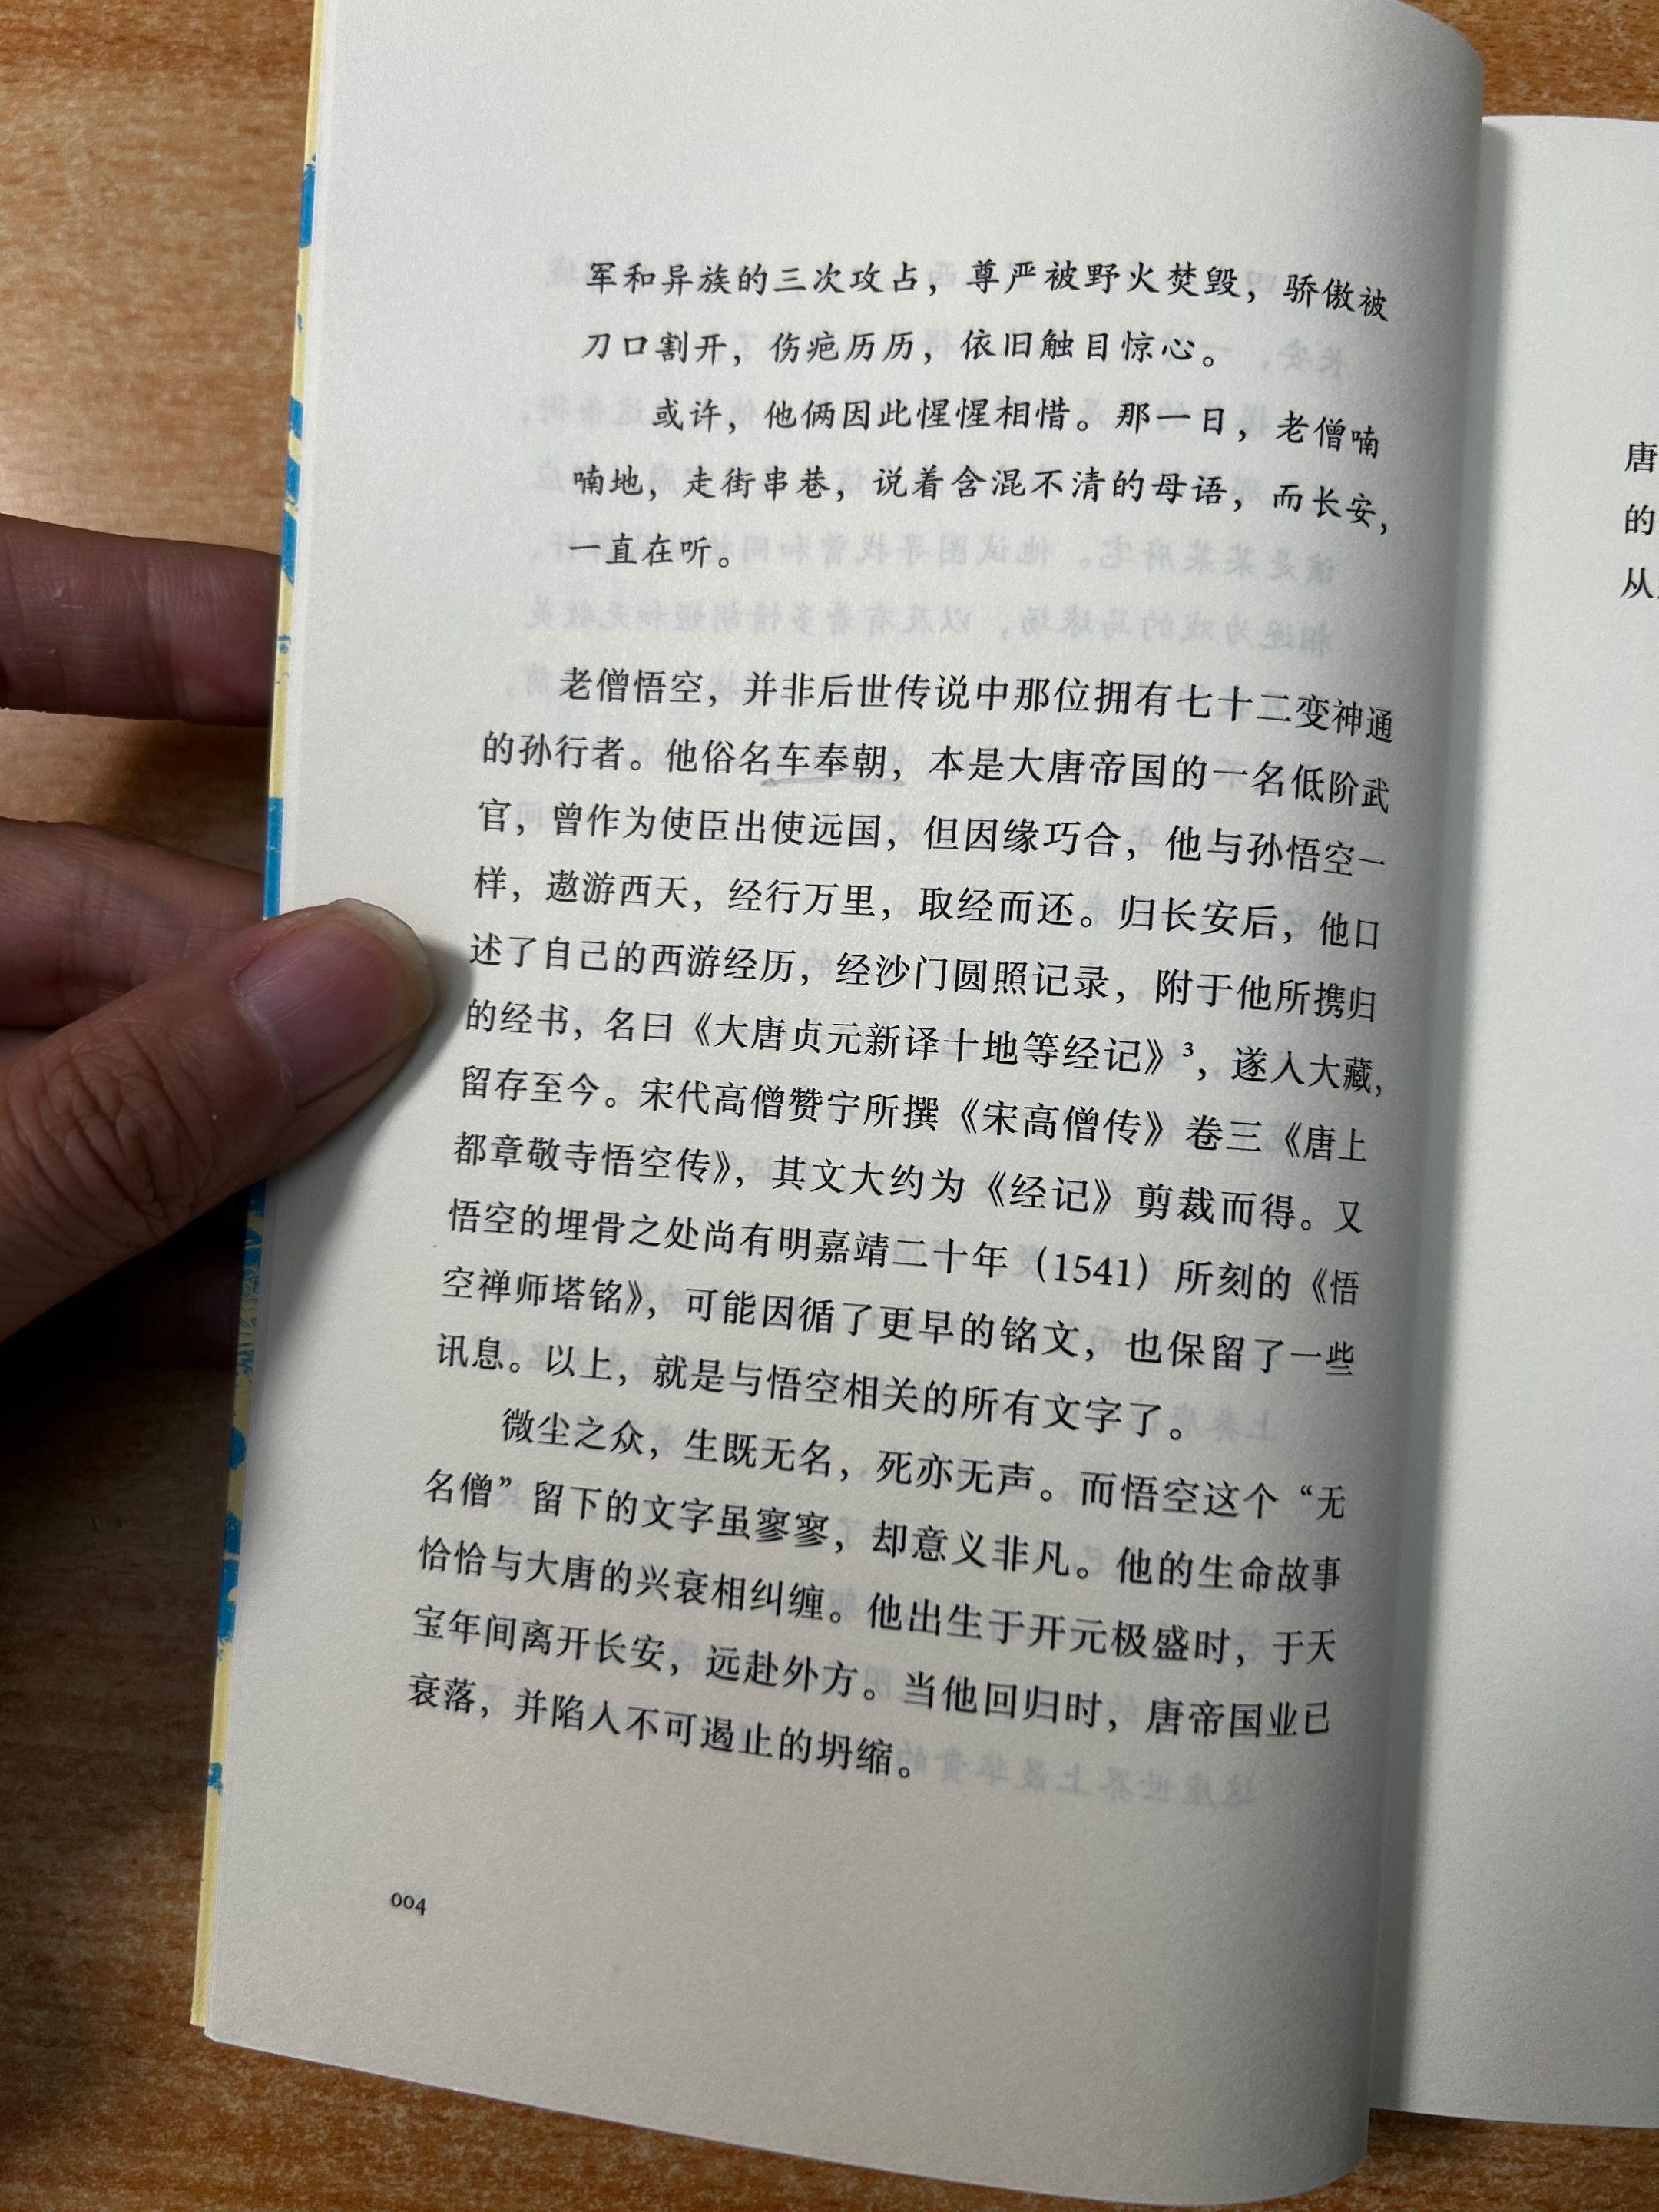 军和异族的三次攻占，尊严被野火焚毁，骄傲被
刀口割开，伤疤历历，依旧触目惊心。
或许，他俩因此惺惺相惜。那一日，老僧喃
喃地，走街串巷，说着含混不清的母语，而长安，
一直在听。
老僧悟空，并非后世传说中那位拥有七十二变神通
的孙行者。他俗名车奉朝，本是大唐帝国的一名低阶武
官，曾作为使臣出使远国，但因缘巧合，他与孙悟空一
样，遨游西天，经行万里，取经而还。归长安后，他口
述了自己的西游经历，经沙门圆照记录，附于他所携归
的经书，名曰《大唐贞元新译十地等经记》³，遂入大藏，
留存至今。宋代高僧赞宁所撰《宋高僧传》卷三《唐上
都章敬寺悟空传》，其文大约为《经记》剪裁而得。又
悟空的埋骨之处尚有明嘉靖二十年（1541）所刻的《悟
空禅师塔铭》，可能因循了更早的铭文，也保留了一些
讯息。以上，就是与悟空相关的所有文字了。
微尘之众，生既无名，死亦无声。而悟空这个“无
名僧”留下的文字虽寥寥，却意义非凡。他的生命故事
恰恰与大唐的兴衰相纠缠。他出生于开元极盛时，于天
宝年间离开长安，远赴外方。当他回归时，唐帝国业已
衰落，并陷入不可遏止的坍缩。
004
唐
的
从